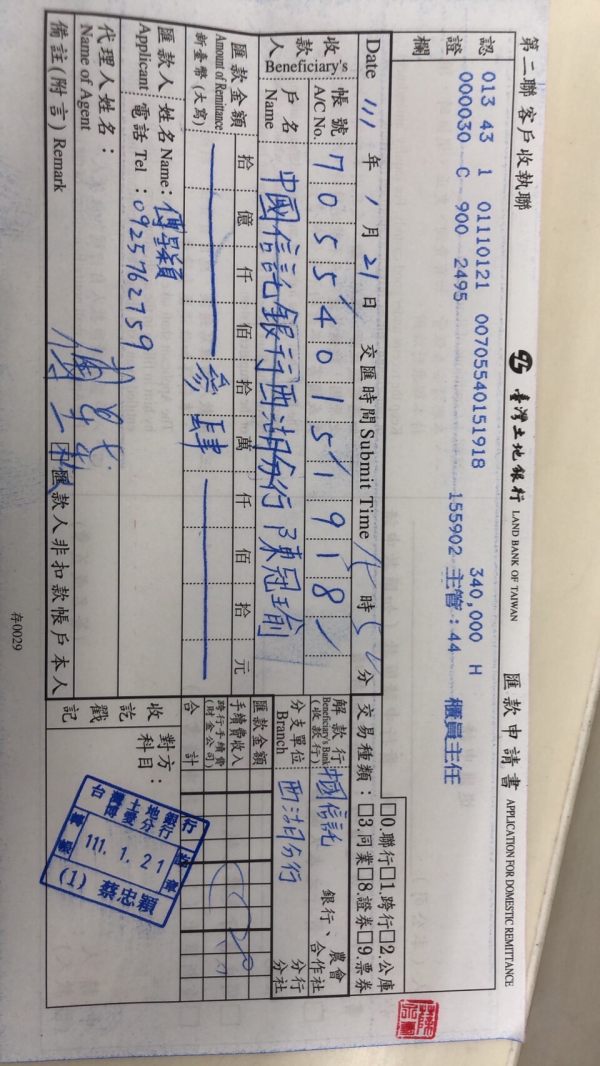 第二聯 客戶收執聯
臺灣土地銀行 LAND BANK OF TAIWAN 匯款申請書 APPLICATION FOR DOMESTIC REMITTANCE
認證欄
013 43 1 01110121 00705540151918 340,000 H
000030 C 900 2495 155902 主管:44 櫃員主任
Date 111 年 1 月 21 日 交匯時間 Submit Time 時 分
交易種類: □0.聯行 □1.跨行 □2.公庫
□3.同業 □8.證券 □9.票券
收款人 Beneficiary's
帳號 A/C No. 7 0 5 5 4 0 1 5 1 9 1 8
戶名 Name 中國信託銀行西湖分行 陳冠瑜
解款行 Beneficiary's Bank (收款行) 中國信託 銀行、農會 合作社
分支單位 Branch 西湖分行 分行 分社
匯款金額 Amount of Remittance 新臺幣(大寫)
拾 億 仟 佰 拾 萬 仟 佰 拾 元
參 肆
匯款金額
手續費收入
跨行手續費(財金公司)
合計
匯款人 Applicant 姓名 Name: 傅 穎
電話 Tel : 0925762759
代理人姓名:
Name of Agent
備註(附言) Remark
匯款人非扣款帳戶本人
收訖戳記
對方科目:
台灣土地銀行
博愛分行
111. 1. 21
(1) 蔡忠穎
存0029